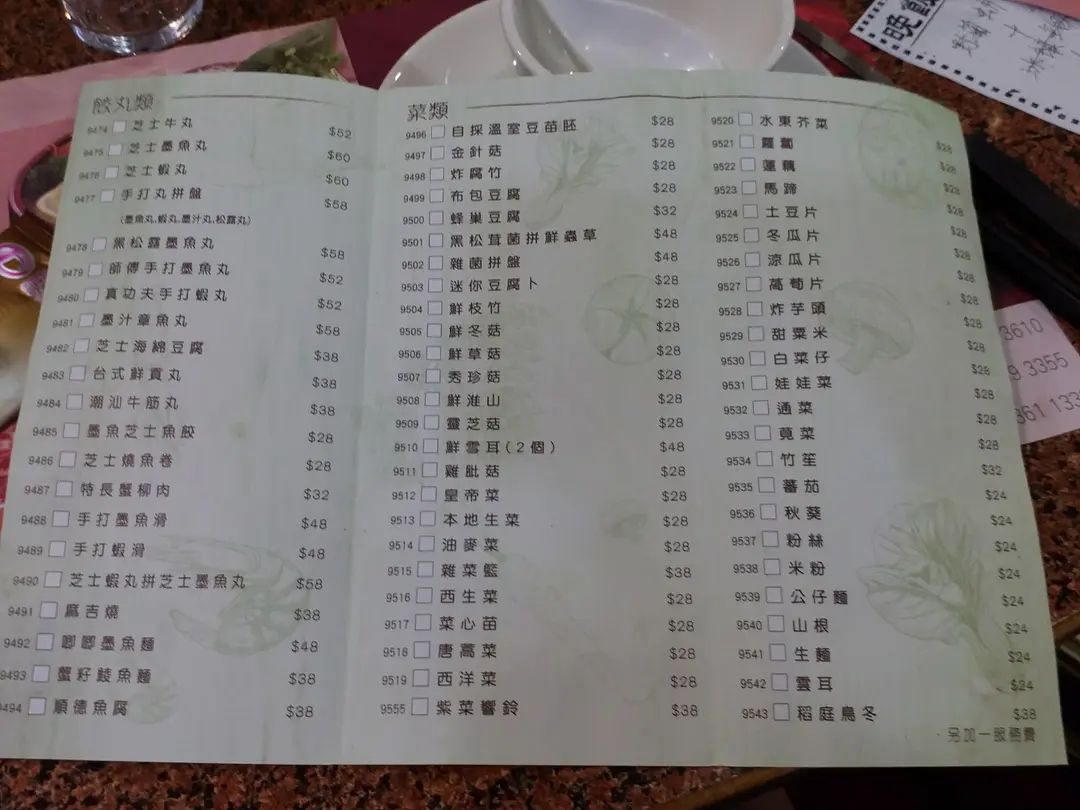 餃丸類
9474 芝士牛丸 $52
9475 芝士墨魚丸 $60
9476 芝士蝦丸 $60
9477 手打丸拼盤 $58
(墨魚丸,蝦丸,墨汁丸,松露丸)
9478 黑松露墨魚丸 $58
9479 師傅手打墨魚丸 $52
9480 真功夫手打蝦丸 $52
9481 墨汁章魚丸 $58
9482 芝士海綿豆腐 $38
9483 台式鮮貢丸 $38
9484 潮汕牛筋丸 $38
9485 墨魚芝士魚餃 $28
9486 芝士燒魚卷 $28
9487 特長蟹柳肉 $32
9488 手打墨魚滑 $48
9489 手打蝦滑 $48
9490 芝士蝦丸拼芝士墨魚丸 $58
9491 麻吉燒 $38
9492 唧唧墨魚麵 $48
9493 蟹籽鯪魚麵 $38
9494 順德魚腐 $38
菜類
9496 自採溫室豆苗胚 $28
9497 金針菇 $28
9498 炸腐竹 $28
9499 布包豆腐 $28
9500 蜂巢豆腐 $32
9501 黑松茸菌拼鮮蟲草 $48
9502 雜菌拼盤 $48
9503 迷你豆腐卜 $28
9504 鮮枝竹 $28
9505 鮮冬菇 $28
9506 鮮草菇 $28
9507 秀珍菇 $28
9508 鮮淮山 $28
9509 靈芝菇 $28
9510 鮮雪耳(2個) $48
9511 雞肶菇 $28
9512 皇帝菜 $28
9513 本地生菜 $28
9514 油麥菜 $28
9515 雜菜籃 $38
9516 西生菜 $28
9517 菜心苗 $28
9518 唐萵菜 $28
9519 西洋菜 $28
9555 紫菜響鈴 $38
9520 水東芥菜 $28
9521 蘿蔔 $28
9522 蓮藕 $28
9523 馬蹄 $28
9524 土豆片 $28
9525 冬瓜片 $28
9526 涼瓜片 $28
9527 萵荀片 $28
9528 炸芋頭 $28
9529 甜粟米 $28
9530 白菜仔 $28
9531 娃娃菜 $28
9532 通菜 $28
9533 莧菜 $28
9534 竹笙 $32
9535 蕃茄 $24
9536 秋葵 $24
9537 粉絲 $24
9538 米粉 $24
9539 公仔麵 $24
9540 山根 $24
9541 生麵 $24
9542 雲耳 $24
9543 稻庭烏冬 $38
·另加一服務費
晚飯
3610
9 3355
361 133